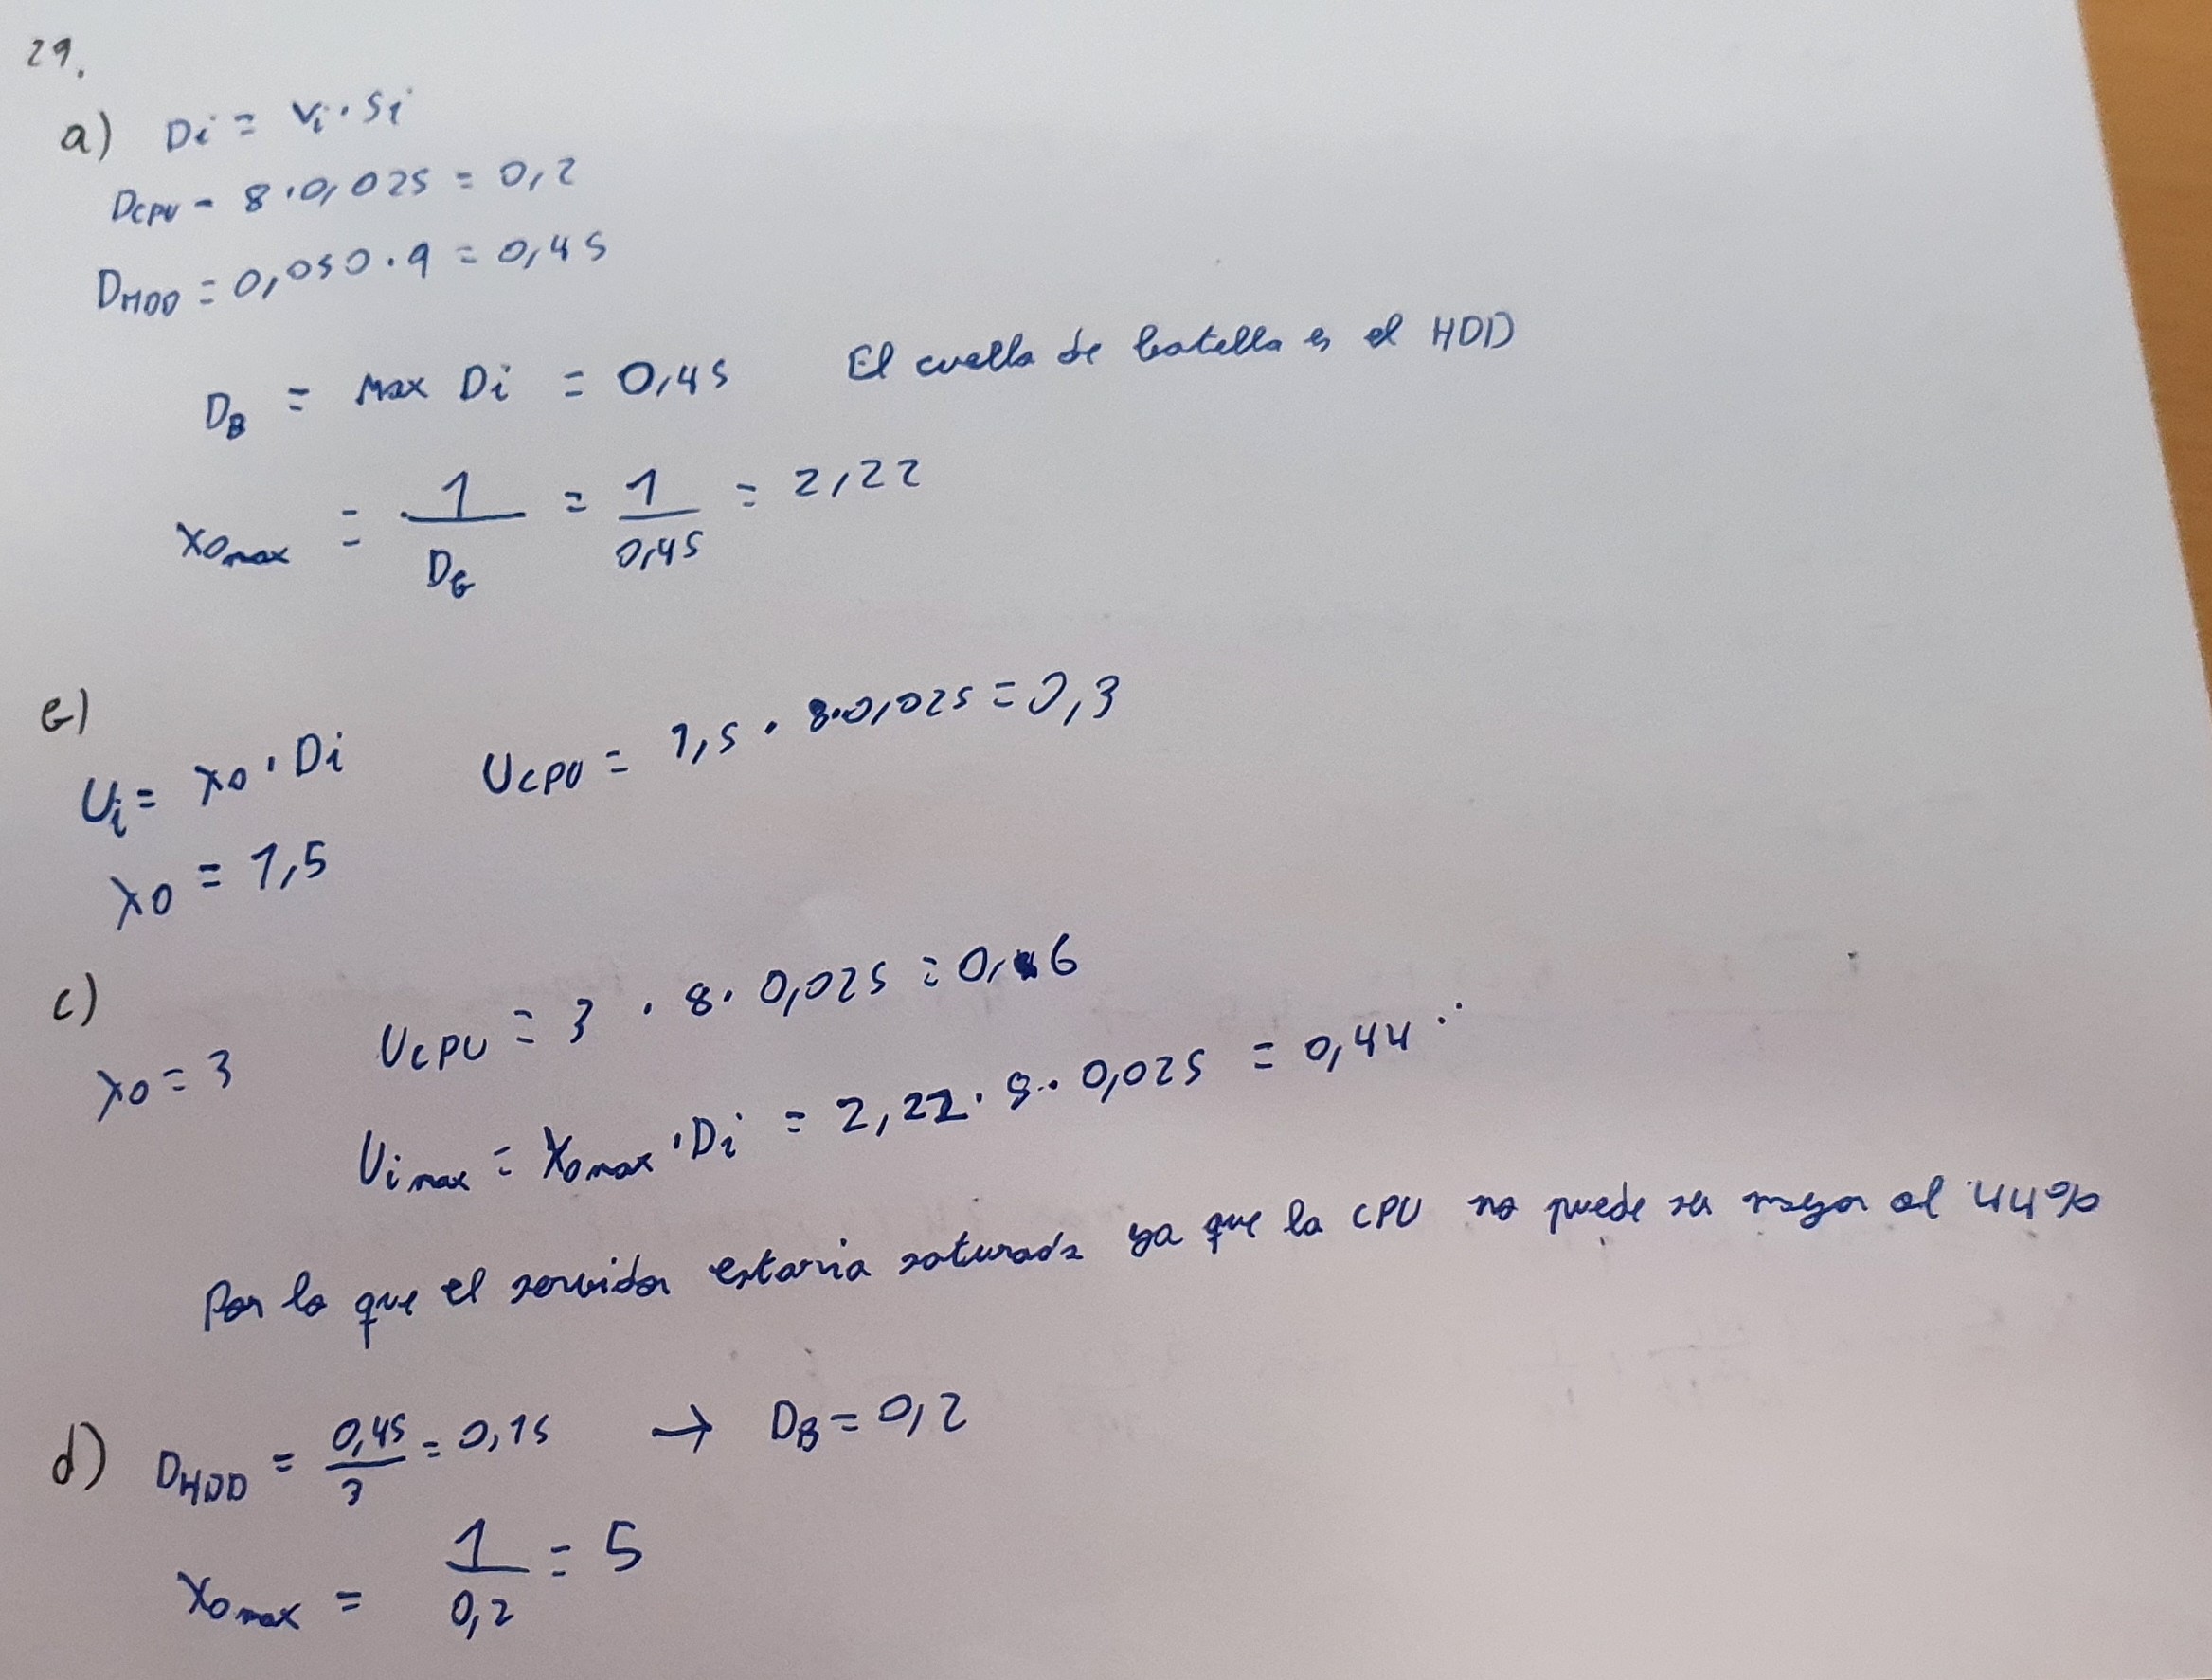 29.
a) Di = Vi · Si
DCPU = 8 · 0,025 = 0,2
DHDD = 0,050 · 9 = 0,45
DB = Max Di = 0,45 El cuello de botella es el HDD
X0max = 1/DB = 1/0,45 = 2,22
b)
Ui = λ0 · Di UCPU = 1,5 · 8 · 0,025 = 0,3
λ0 = 1,5
c)
λ0 = 3 UCPU = 3 · 8 · 0,025 = 0,6
Uimax = X0max · Di = 2,22 · 8 · 0,025 = 0,44..
Por lo que el servidor estaria saturado ya que la CPU no puede ser mayor al 44%
d) DHDD = 0,45/3 = 0,15 → DB = 0,2
X0max = 1/0,2 = 5